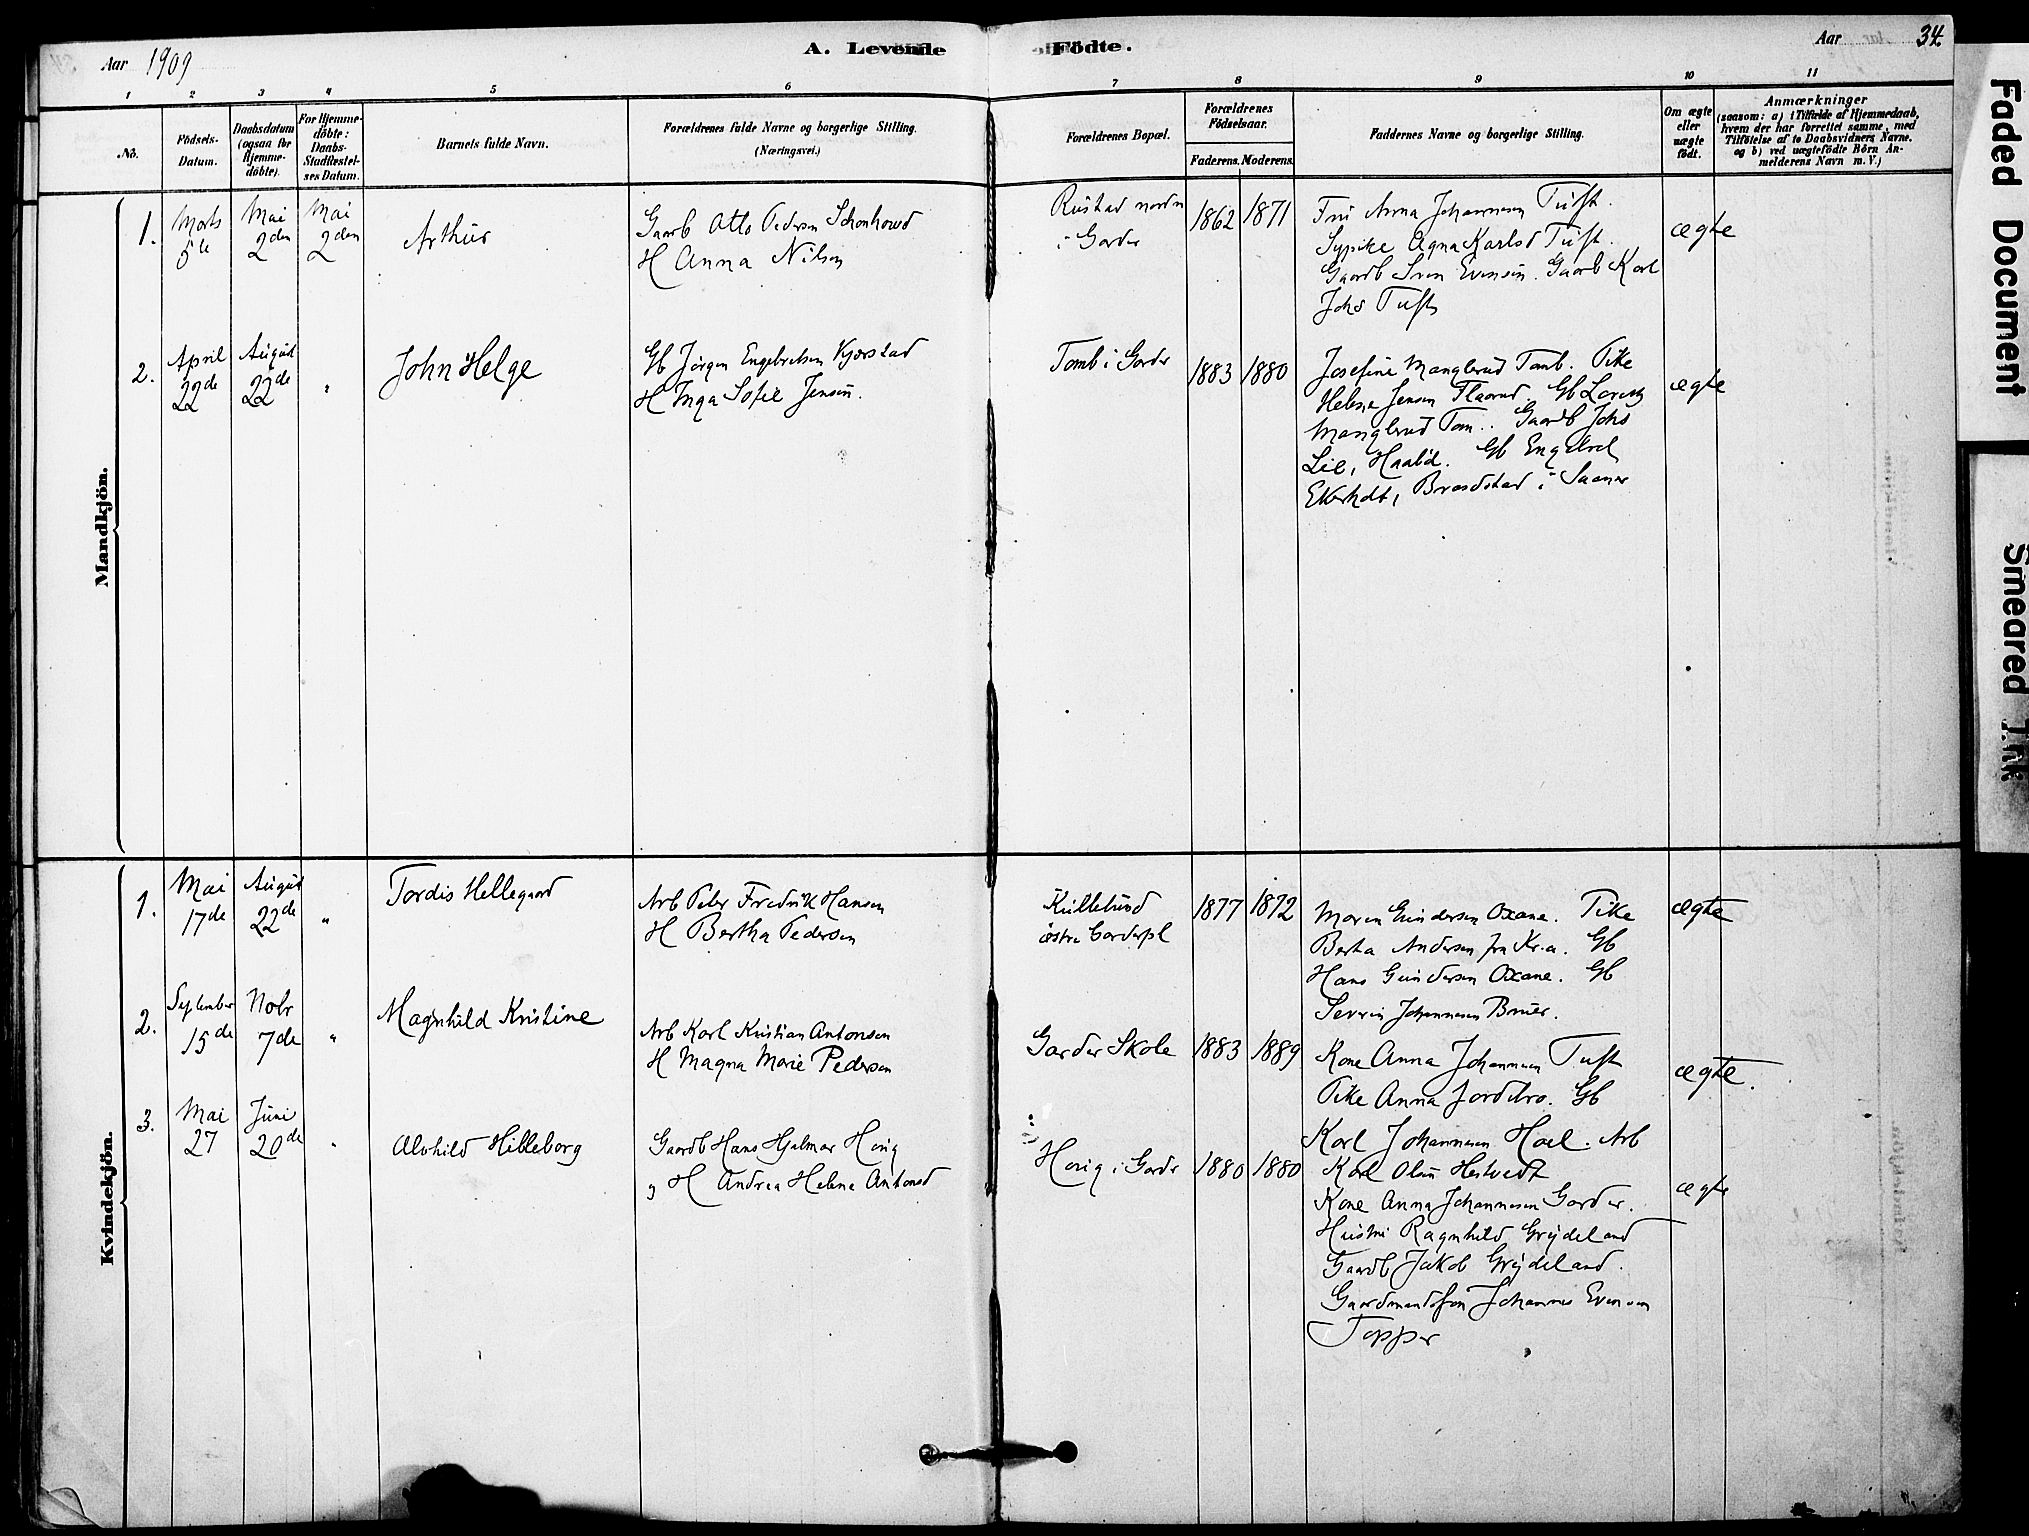 Aar 1909
A. Levende Födte.
Aar
34
1 2 3 4 5 6 7 8 9 10 11
No.
Födsels-
Datum.
Daabsdatum
(ogsaa for
Hjemme-
döbte).
For Hjemme-
döbte:
Daabs-
Stadfæstel-
ses Datum.
Barnets fulde Navn.
Forældrenes fulde Navne og borgerlige Stilling.
(Næringsvei.)
Forældrenes Bopæl.
Forældrenes
Födselsaar.
Faderens. Moderens.
Faddernes Navne og borgerlige Stilling.
Om ægte
eller
uægte
födt.
Anmærkninger
(saasom: a) i Tilfælde af Hjemmedaab,
hvem der har forrettet samme, med
Tilföielse af to Daabsvidners Navne.
og b) ved uægtefödte Börn An-
melderens Navn m. V.)
Mandkjön.
1.
Marts
5te
Mai
2den
Mai
2den
Arthur
Gaarb Otto Pedersen
H Anna Nilsen
Rustad nordre
i Garder
1862 1871
Fru Anna Johannesen Tuft.
Karlsd Tuft.
Gaardb Sven Evensen. Gaarb Karl
Johs Tuft
ægte
2.
April
22de
August
22de
"
John Helge
Gb Jörgen Engebretsen Kjærstad
H Inga Sofie Jensen.
Tomb i Garder
1883 1880
Josefine Manglerud Tomb. Pike
Helene Jensen Gb Lorentz
Manglerud Tom.. Gaardb Johs
Lie, Gb Engebret
i Saaner
ægte
Kvindekjön.
1.
Mai
17de
August
22de
"
Tordis Hellegaard
Arb Peter Fredrik Hansen
H Bertha Pedersen
Kullebund
østre Garderpl
1877 1872
Maren Gundersen Oxane. Pike
Berta Andersen fra Kr.a. Gb
Hans Gundersen Oxane. Gb
Severin Johannesen Bruer.
ægte
2.
September
15de
Nobr
7de
"
Magnhild Kristine
Arb Karl Kristian Antonsen
H Magna Marie Pedersen
Garder Skole
1883 1889
Kone Anna Johannesen Tuft
Pike Anna Jordebro. Gb
Karl Johannesen Hoel. Arb
Karl Olsen Hestvedt
ægte.
3.
Mai
27
Juni
20de
"
Alvhild Hilleborg
Gaardb Hans Hjalmar Horig
og H Andrea Helene Antonsd
Horig i Garder
1880 1880
Kone Anna Johannesen Garder.
Hustru Ragnhild Grydeland
Gaardb Jakob Grydeland.
Gaardmandssøn Johannes Evensen
Topper
ægte
Faded Document
Smeared Ink